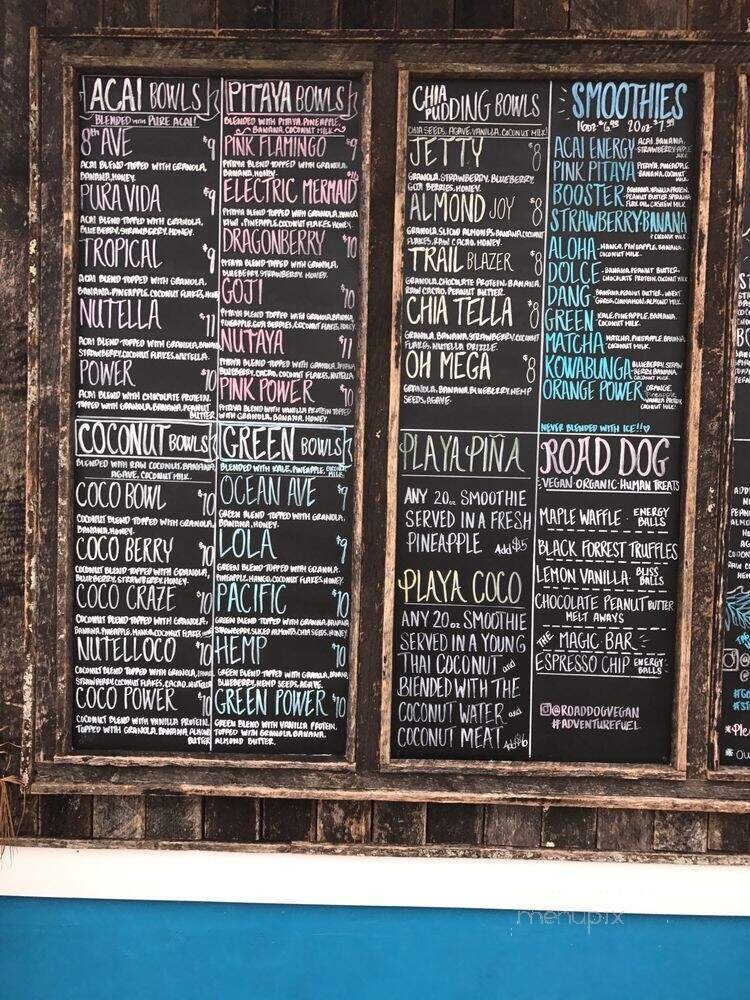 ACAI BOWLS
BLENDED WITH PURE ACAI!
8th AVE $9
ACAI BLEND TOPPED WITH GRANOLA,
BANANA, HONEY.
PURA VIDA $9
ACAI BLEND TOPPED WITH GRANOLA,
BLUEBERRY, STRAWBERRY, HONEY.
TROPICAL $9
ACAI BLEND TOPPED WITH GRANOLA,
BANANA, PINEAPPLE, COCONUT FLAKES,
NUTELLA $11
ACAI BLEND TOPPED WITH GRANOLA, BANANA
STRAWBERRY, COCONUT FLAKES, NUTELLA.
POWER $10
ACAI BLEND WITH CHOCOLATE PROTEIN.
TOPPED WITH GRANOLA, BANANA, PEANUT
BUTTER
COCONUT BOWLS
BLENDED WITH RAW COCONUT, BANANA
AGAVE, COCONUT MILK.
COCO BOWL $10
COCONUT BLEND TOPPED WITH GRANOLA,
BANANA, HONEY.
COCO BERRY $10
COCONUT BLEND TOPPED WITH GRANOLA,
BLUEBERRY, STRAWBERRY, HONEY.
COCO CRAZE $10
COCONUT BLEND TOPPED WITH GRANOLA,
BANANA, PINEAPPLE, MANGO, COCONUT FLAKES
NUTELLOCO $10
COCONUT BLEND TOPPED WITH GRANOLA,
STRAWBERRY, COCONUT FLAKES, CACAO, NUTELLA
COCO POWER $10
COCONUT BLEND WITH VANILLA PROTEIN.
TOPPED WITH GRANOLA, BANANA, ALMOND
BUTTER
PITAYA BOWLS
BLENDED WITH PITAYA, PINEAPPLE,
BANANA, COCONUT MILK.
PINK FLAMINGO $9
PITAYA BLEND TOPPED WITH GRANOLA,
BANANA, HONEY.
ELECTRIC MERMAID
PITAYA BLEND TOPPED WITH GRANOLA, MANGO
KIWI, PINEAPPLE, COCONUT FLAKES, HONEY
DRAGONBERRY $10
PITAYA BLEND TOPPED WITH GRANOLA,
BLUEBERRY, STRAWBERRY, HONEY.
GOJI $10
PITAYA BLEND TOPPED WITH GRANOLA, BANANA
PINEAPPLE, GOJI BERRIES, COCONUT FLAKES, HONEY
NUTAYA $11
PITAYA BLEND TOPPED WITH GRANOLA, BANANA
BLUEBERRY, CACAO, COCONUT FLAKES, NUTELLA
PINK POWER $10
PITAYA BLEND WITH VANILLA PROTEIN TOPPED
WITH GRANOLA, BANANA, HONEY.
GREEN BOWLS
BLENDED WITH KALE, PINEAPPLE, COCONUT
MILK
OCEAN AVE $9
GREEN BLEND TOPPED WITH GRANOLA,
BANANA, HONEY.
LOLA $9
GREEN BLEND TOPPED WITH GRANOLA,
PINEAPPLE, MANGO, COCONUT FLAKES, HONEY.
PACIFIC $10
GREEN BLEND TOPPED WITH GRANOLA, BANANA
STRAWBERRY, SLICED ALMONDS, CHIA SEEDS, HONEY
HEMP $10
GREEN BLEND TOPPED WITH GRANOLA, BANANA,
BLUEBERRY, HEMP SEEDS, AGAVE.
GREEN POWER $10
GREEN BLEND WITH VANILLA PROTEIN,
TOPPED WITH GRANOLA, BANANA,
ALMOND BUTTER.
CHIA PUDDING BOWLS
CHIA SEEDS, AGAVE, VANILLA, COCONUT MILK.
JETTY $8
GRANOLA, STRAWBERRY, BLUEBERRY,
GOJI BERRIES, HONEY.
ALMOND JOY $8
GRANOLA, SLICED ALMONDS, BANANA, COCONUT
FLAKES, RAW CACAO, HONEY.
TRAIL BLAZER $8
GRANOLA, CHOCOLATE PROTEIN, BANANA,
RAW CACAO, PEANUT BUTTER.
CHIA TELLA $8
GRANOLA, BANANA, STRAWBERRY, COCONUT
FLAKES, NUTELLA DRIZZLE.
OH MEGA $8
GRANOLA, BANANA, BLUEBERRY, HEMP
SEEDS, AGAVE.
PLAYA PIÑA
ANY 20oz SMOOTHIE
SERVED IN A FRESH
PINEAPPLE Add $5
PLAYA COCO
ANY 20oz SMOOTHIE
SERVED IN A YOUNG
THAI COCONUT and
BLENDED WITH THE
COCONUT WATER and
COCONUT MEAT Add $6
SMOOTHIES
16oz $6.99 20oz $7.99
ACAI ENERGY - ACAI, BANANA,
STRAWBERRY, APPLE
JUICE
PINK PITAYA - PITAYA, PINEAPPLE,
BANANA, COCONUT
MILK
BOOSTER - BANANA, VANILLA PROTEIN,
PEANUT BUTTER, SPIRULINA
STRAWBERRY-BANANA
COCONUT MILK
ALOHA - MANGO, PINEAPPLE, BANANA,
COCONUT MILK.
DOLCE - BANANA, PEANUT BUTTER,
CHOCOLATE PROTEIN, COCONUT MILK
DANG - BANANA, PEANUT BUTTER,
CINNAMON, ALMOND MILK
GREEN - KALE, PINEAPPLE, BANANA,
COCONUT MILK.
MATCHA - MATCHA, PINEAPPLE, BANANA,
COCONUT MILK.
KOWABUNGA - BLUEBERRY, STRAW
BERRY, BANANA,
COCONUT MILK
ORANGE POWER - ORANGE,
PINEAPPLE
VANILLA PROTEIN
COCONUT MILK!
NEVER BLENDED WITH ICE!!
ROAD DOG
VEGAN·ORGANIC·HUMAN TREATS
MAPLE WAFFLE - ENERGY
BALLS
BLACK FORREST TRUFFLES
LEMON VANILLA BLISS
BALLS
CHOCOLATE PEANUT BUTTER
MELT AWAYS
THE MAGIC BAR
ESPRESSO CHIP ENERGY
BALLS
@ROADDOGVEGAN
#ADVENTUREFUEL
menupix